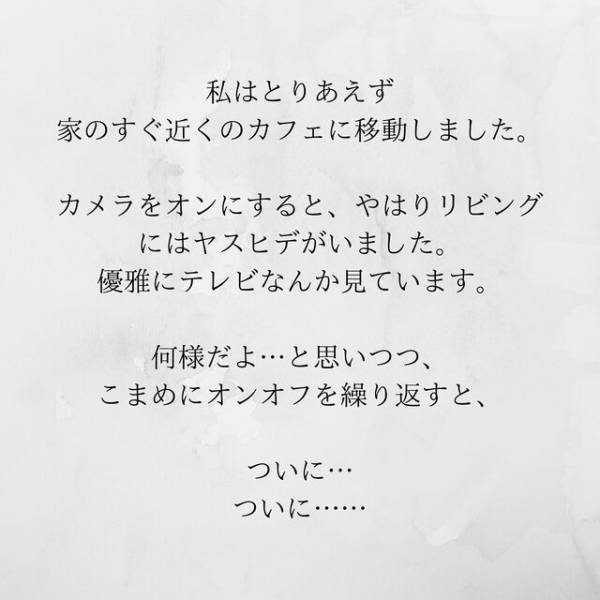 私はとりあえず
家のすぐ近くのカフェに移動しました。
カメラをオンにすると、やはりリビング
にはヤスヒデがいました。
優雅にテレビなんか見ています。
何様だよ…と思いつつ、
こまめにオンオフを繰り返すと、
ついに…
ついに……